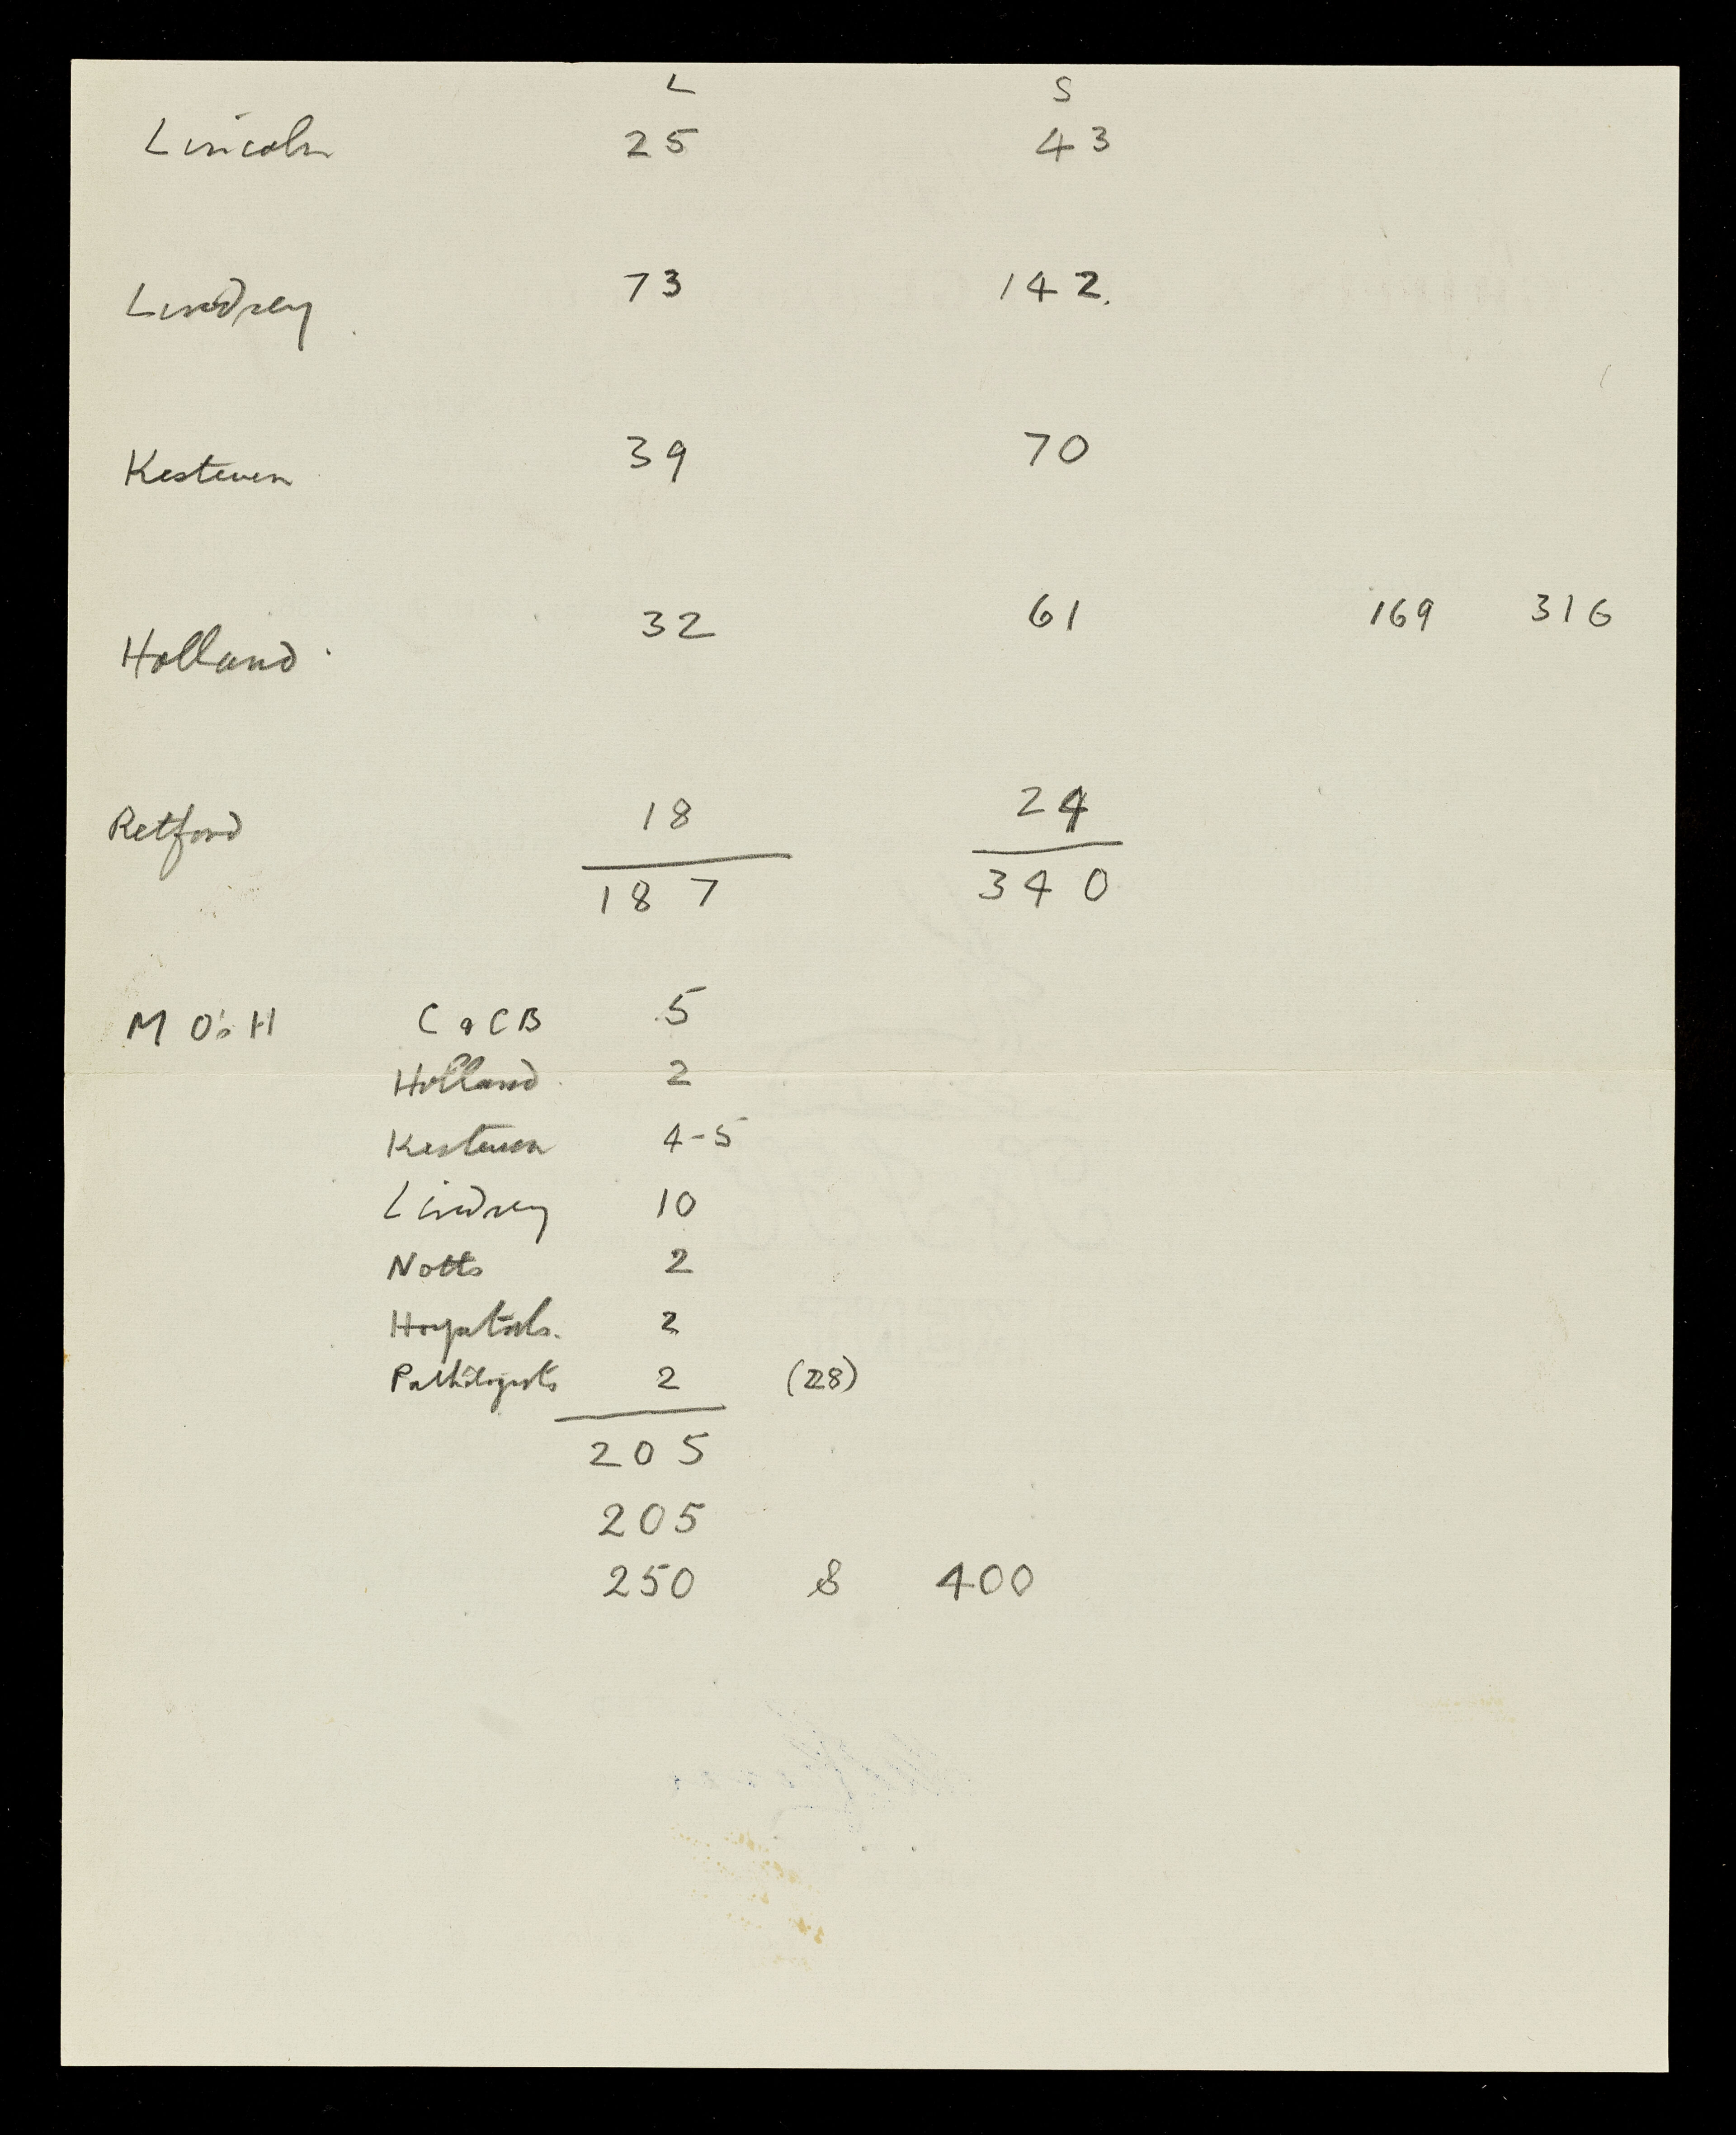 L S
Lincoln 25 43
Lindsey 73 142.
Kesteven 39 70
Holland 32 61 169 316
Retford 18 24
187 340
M O's H C & CB 5
Holland 2
Kesteven 4-5
Lindsey 10
Notts 2
Hospitals. 2
Pathologists 2 (28)
205
205
250 & 400